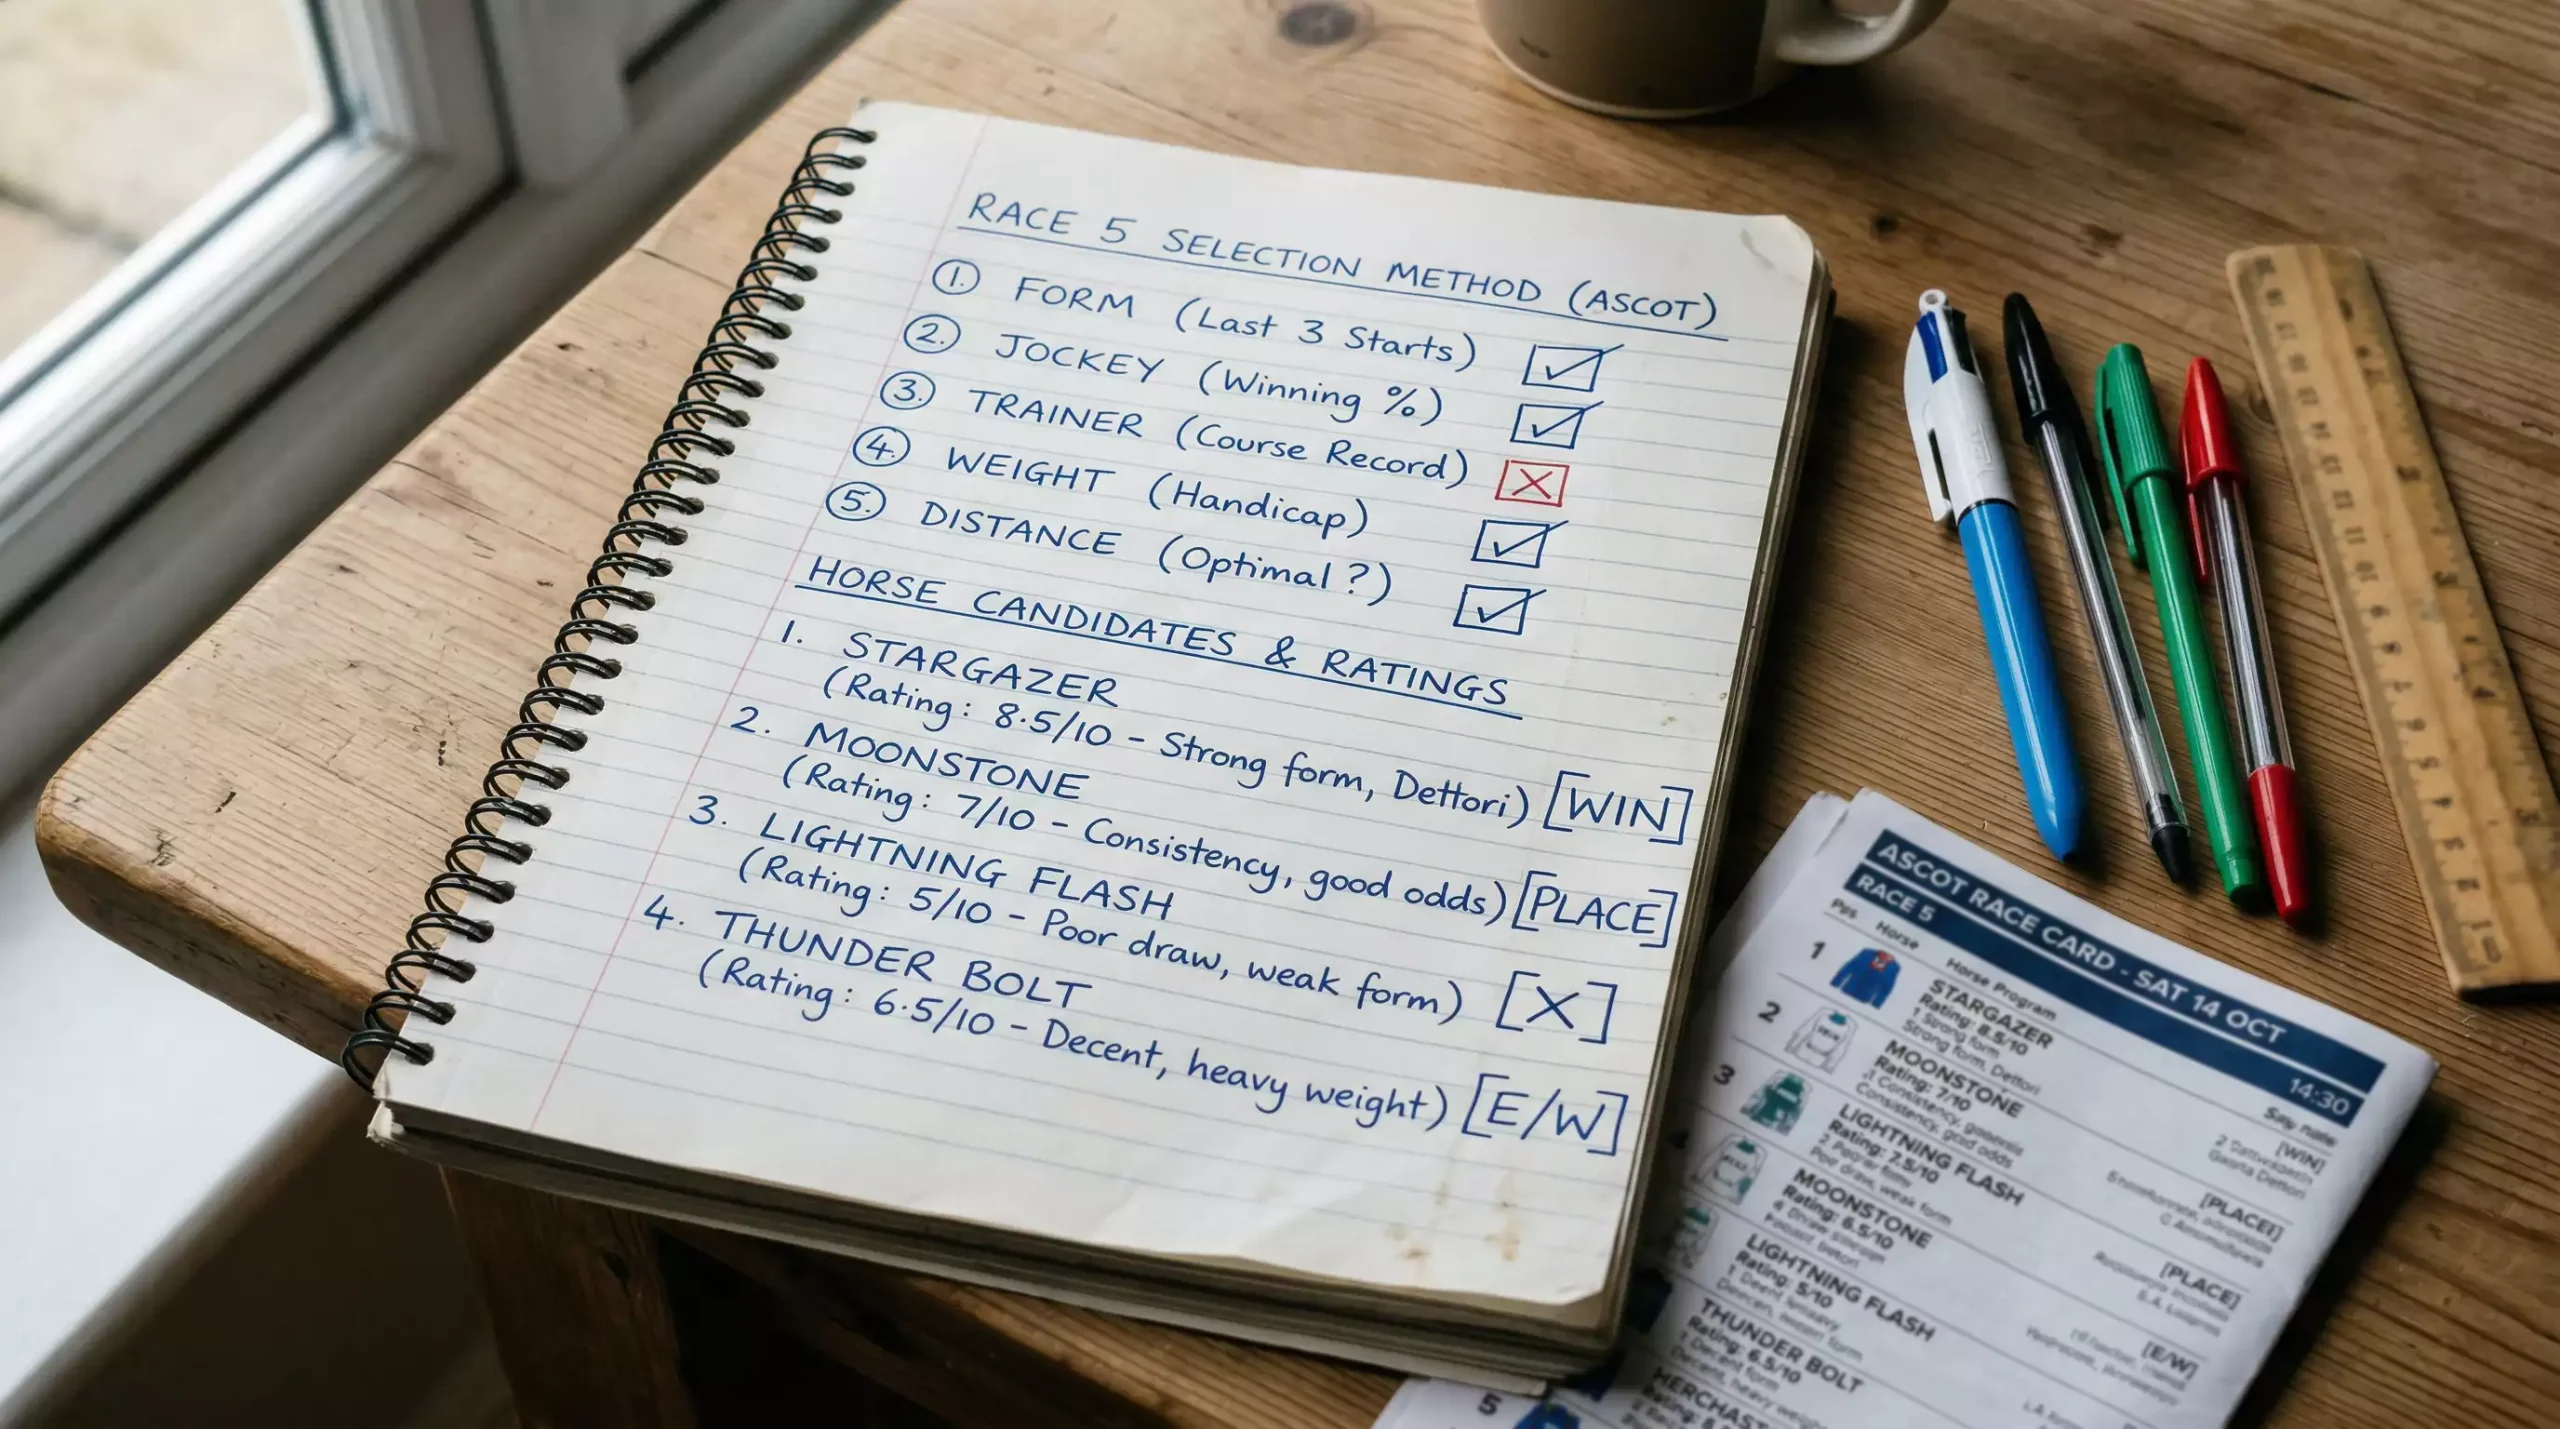 RACE 5 SELECTION METHOD (ASCOT)
1. FORM (Last 3 Starts)
2. JOCKEY (Winning %)
3. TRAINER (Course Record)
4. WEIGHT (Handicap)
5. DISTANCE (Optimal?)
HORSE CANDIDATES & RATINGS
1. STARGAZER
(Rating: 8.5/10 - Strong form, Dettori) [WIN]
2. MOONSTONE
(Rating: 7/10 - Consistency, good odds) [PLACE]
3. LIGHTNING FLASH
(Rating: 5/10 - Poor draw, weak form) [X]
4. THUNDER BOLT
(Rating: 6.5/10 - Decent, heavy weight) [E/W]
ASCOT RACE CARD - SAT 14 OCT
RACE 5 14:30
Horse Horse Program
1 STARGAZER
Rating: 8.5/10 [WIN]
1 Strong form
Strong form, Dettori
2 MOONSTONE
Rating: 7/10 [PLACE]
Consistency, good odds
3 LIGHTNING FLASH
Rating: 7.5/10 [PLACE]
Poor draw, weak form
MOONSTONE
Rating: 6.5/10 [E/W]
LIGHTNING FLASH
Rating: 5/10
THUNDER BOLT
Rating: 6.5/10
1 Decent form
5